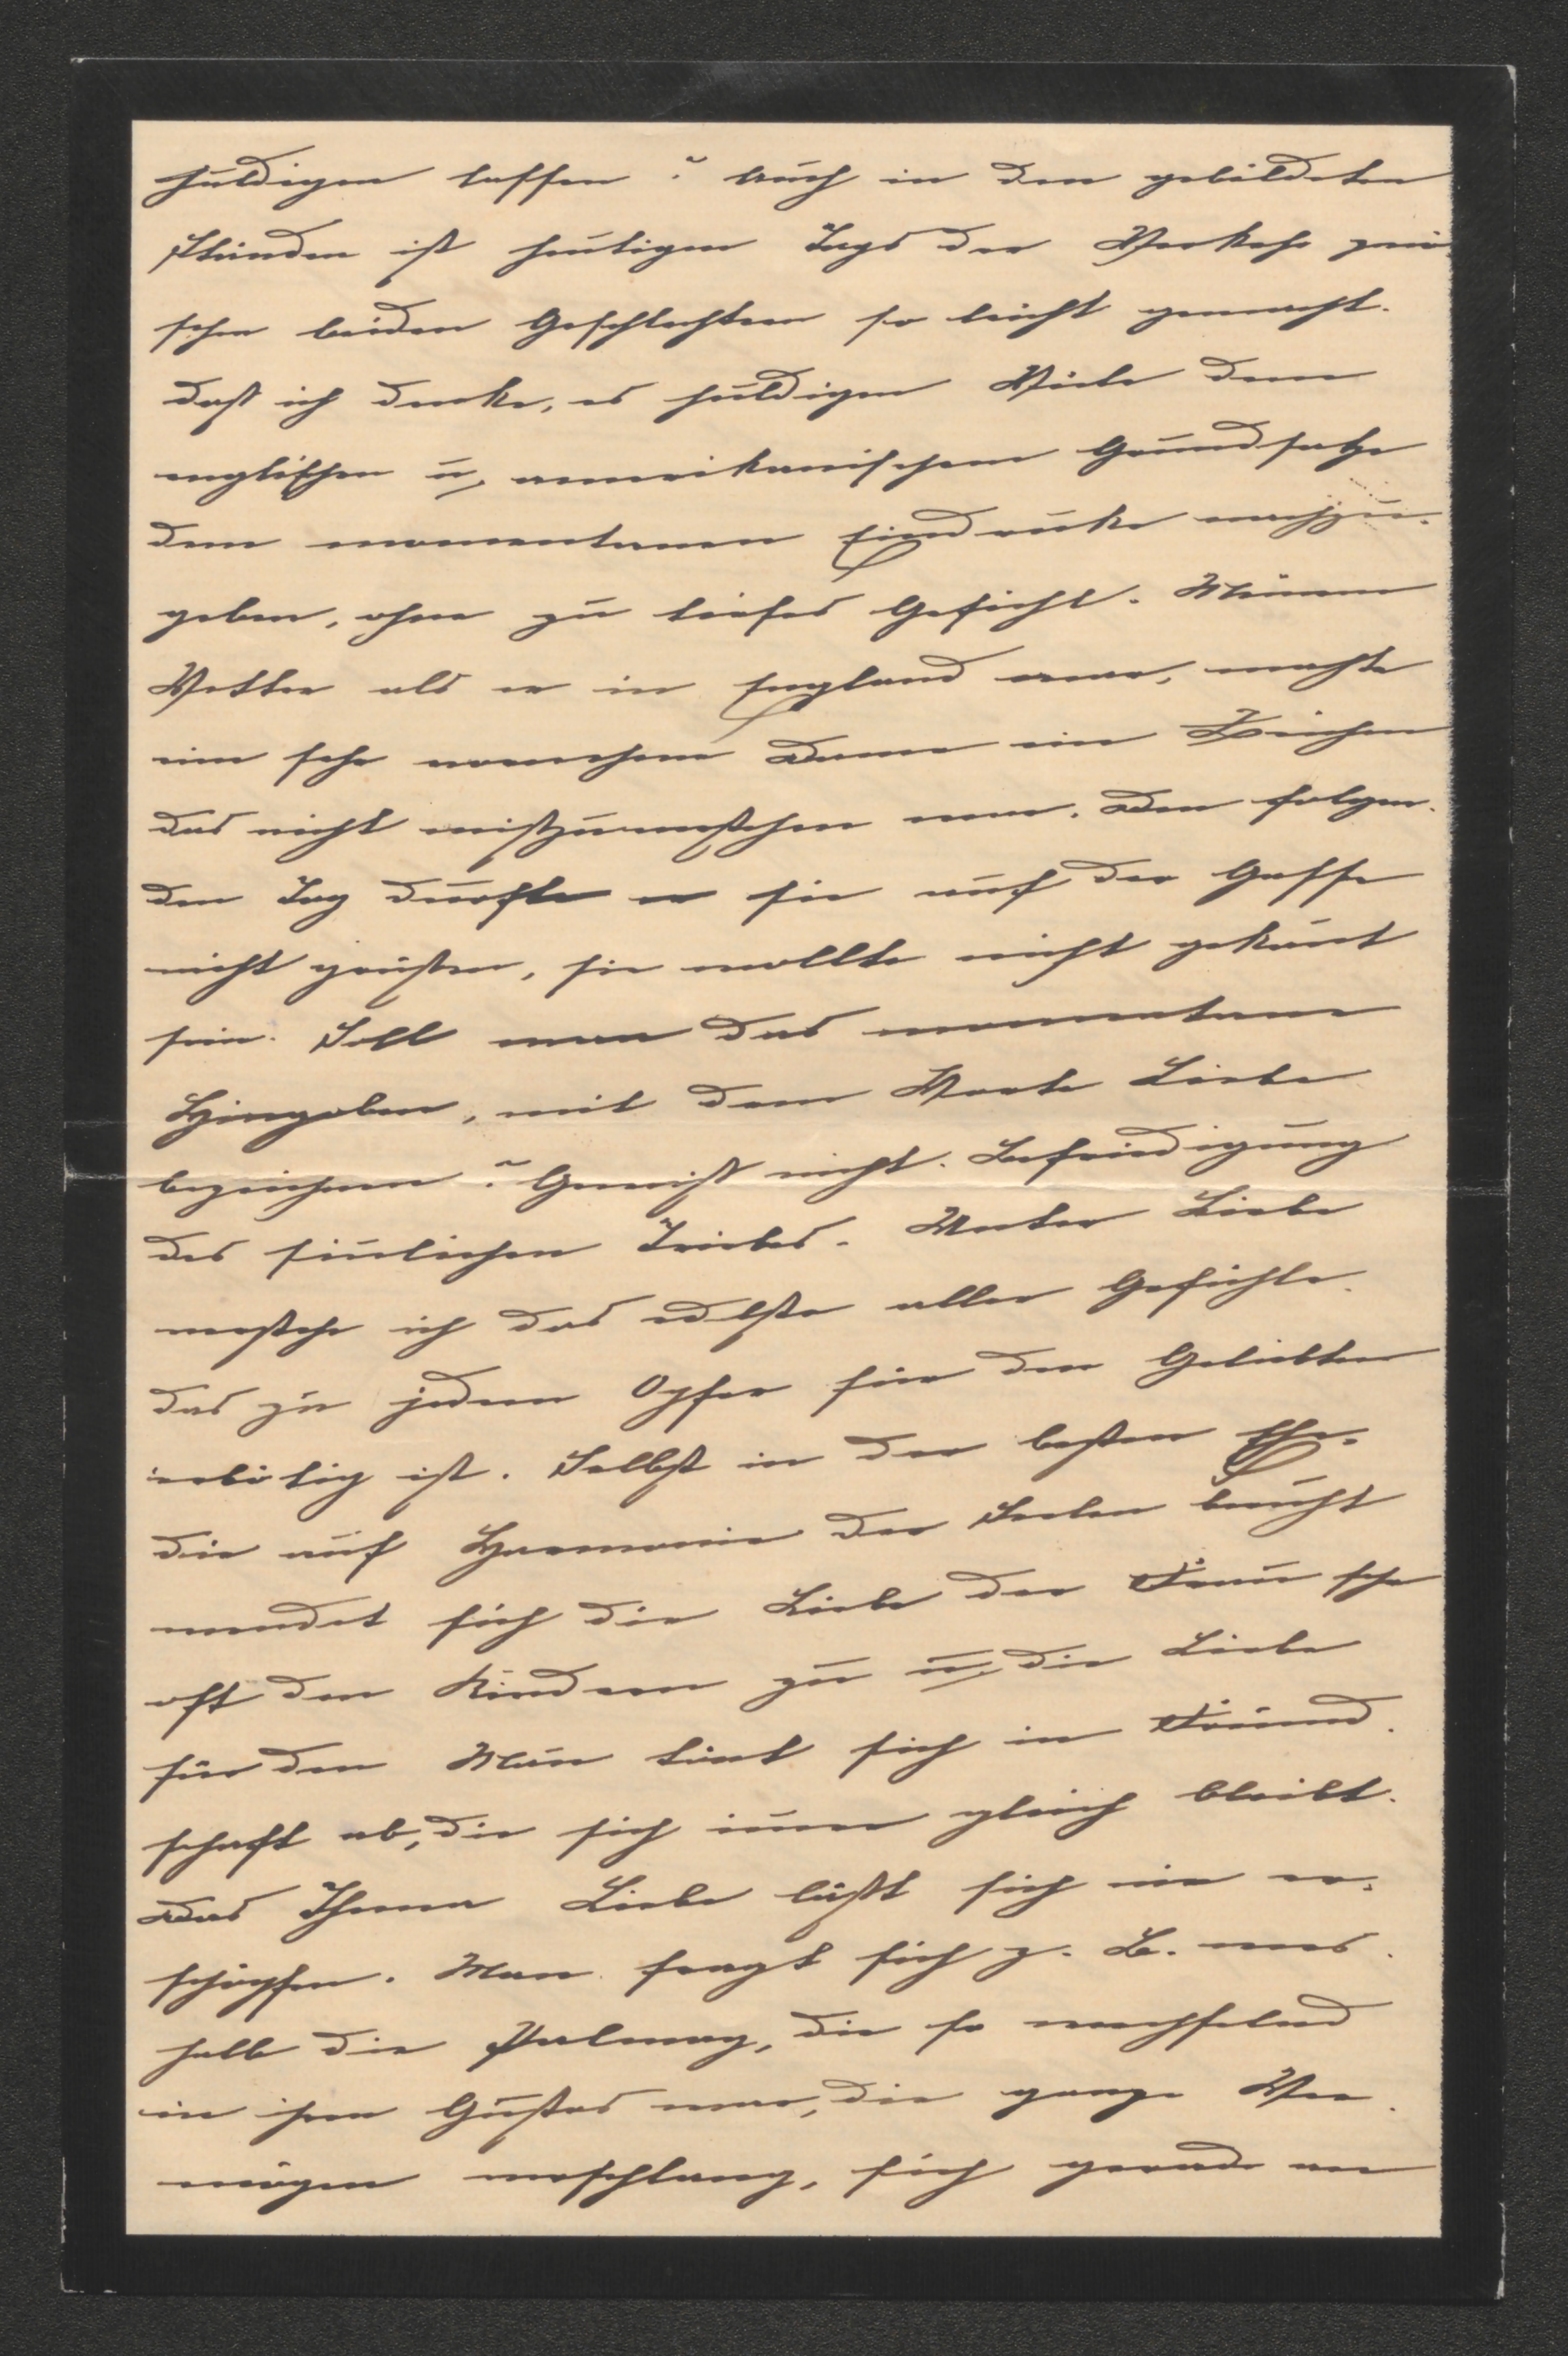 huldigen lassen? Auch in den gebildeten
Ständen ist heutigen Tags der Verkehr zwi-
schen beiden Geschlechtern so leicht gemacht.
daß ich denke, es huldigen Viele dem
englischen u. amerikanischem Grundsatze
dem momentanen Eindrucke nachzu-
geben, ohne zu tiefes Gefühl. Meinem
Vetter als er in England war, machte
eine sehr vornehme Dame ein Zeichen
das nicht mißzuverstehen war. Den folgen-
den Tag durfte er sie auf der Gasse
nicht grüßen, sie wollte nicht gekañt
sein. Soll man das momentane
Hingeben, mit dem Worte Liebe
bezeichnen? Gewiß nicht. Befriedigung
des siñlichen Triebes. Unter Liebe
verstehe ich das edelste aller Gefühle.
das zu jedem Opfer für den Geliebten
erbötig ist. Selbst in der besten Ehe,
die auf Harmonie der Seelen beruht
wendet sich die Liebe der Frau sehr
oft den Kindern zu u. die Liebe
für den Mañ tönt sich in Freund-
schaft ab, die sich im̄er gleich bleibt.
Das Thema Liebe läßt sich nie er-
schöpfen. Man fragt sich z. B. wes-
halb die Palmay, die so wechselnd
in ihren Gustos war, die ganze Ver-
mögen verschlang, sich gerade an